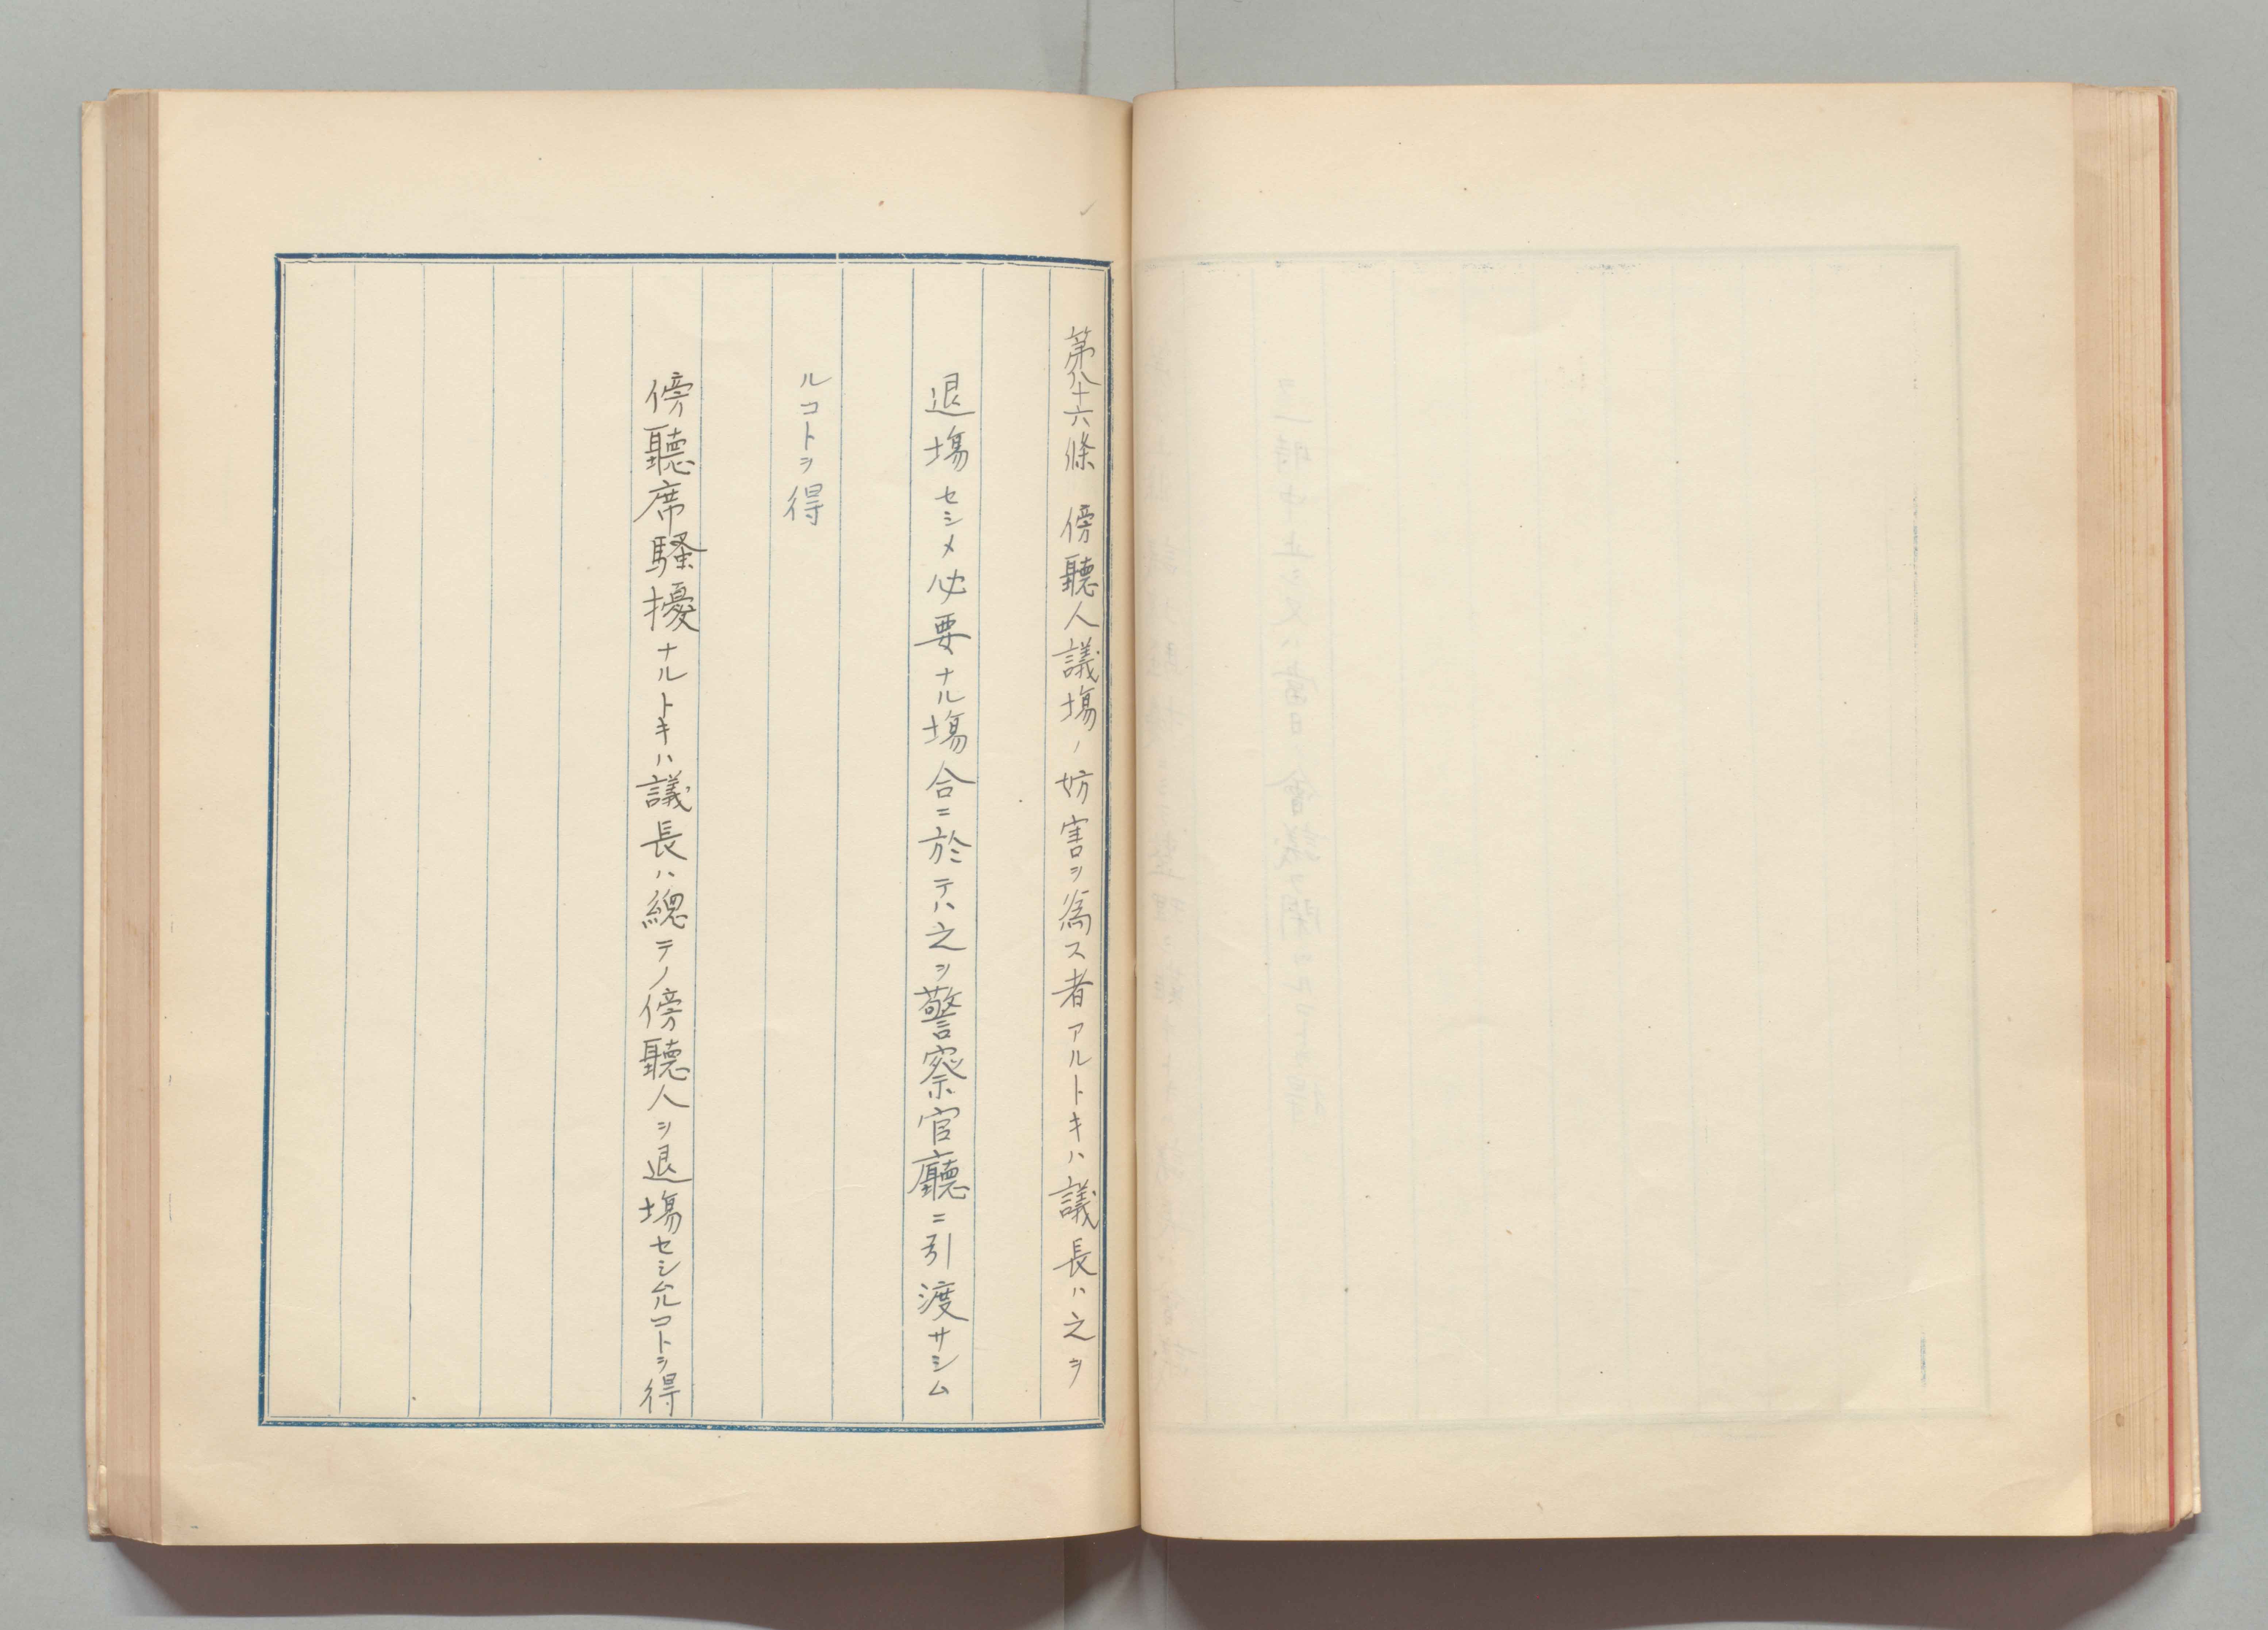 第八十六條　傍聽人議塲ノ妨害ヲ爲ス者アルトキハ議長ハ之ヲ
退塲セシメ必要ナル塲合ニ於テハ之ヲ警察官廳ニ引渡サシム
ルコトヲ得
傍聽席騷擾ナルトキハ議長ハ總テノ傍聽人ヲ退塲セシムルコトヲ得